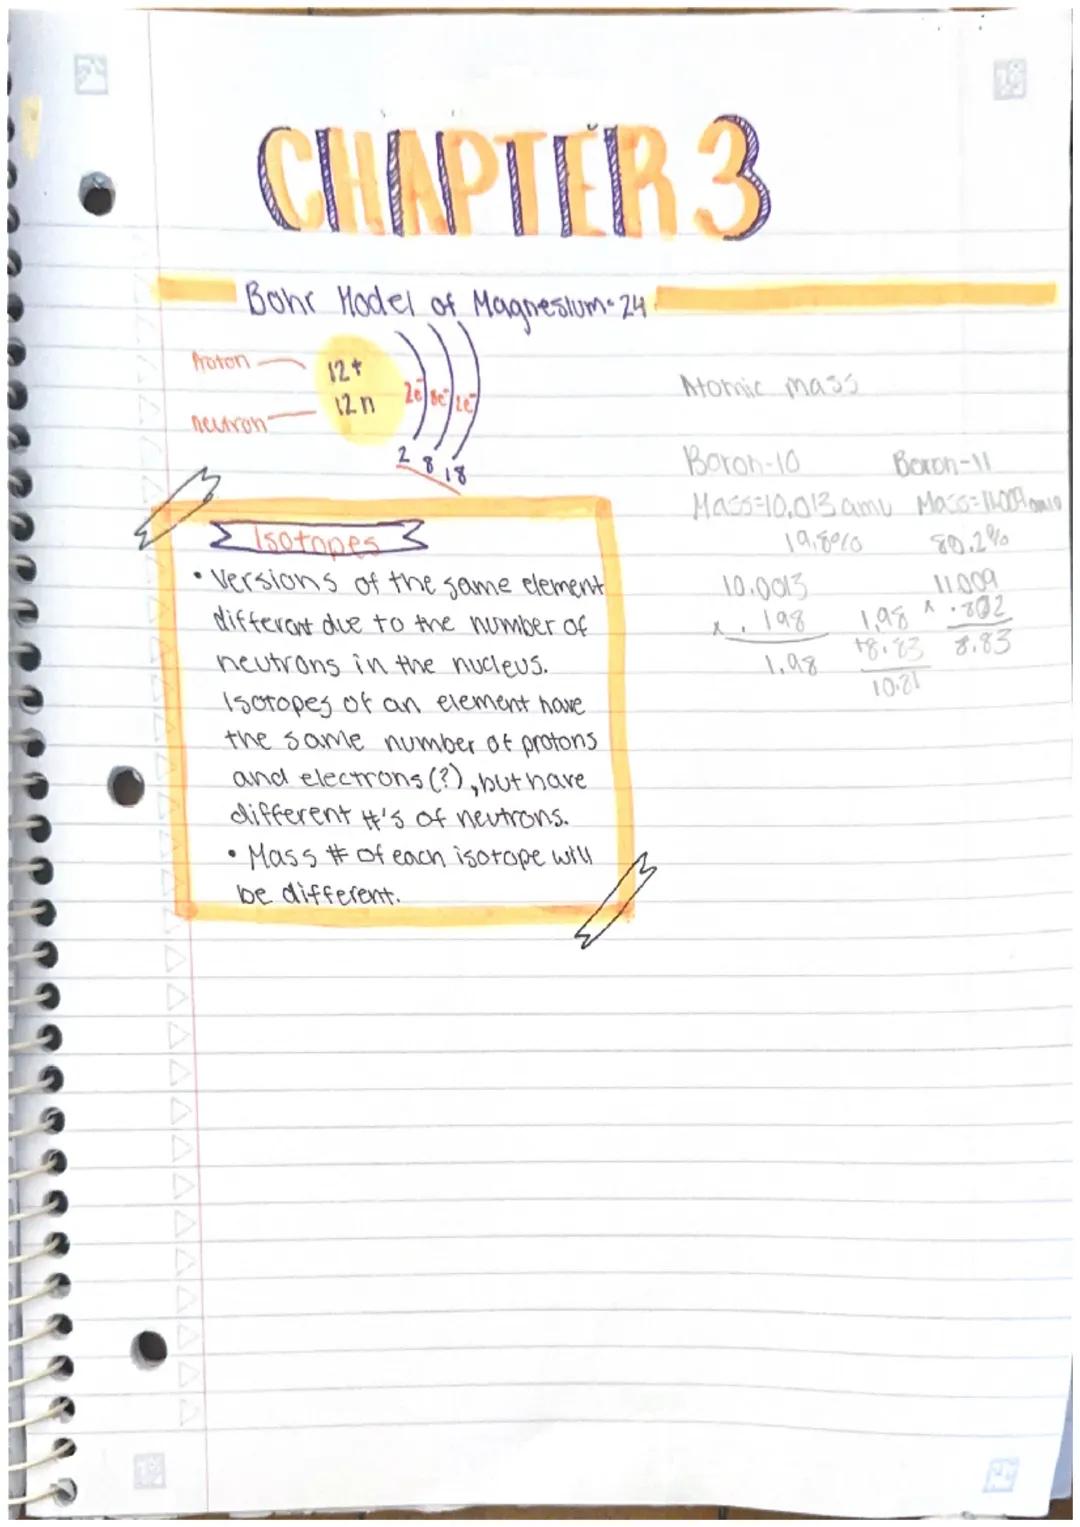 CHAPTER 3
Bohr Model of Magnesium-24
Proton
12+
12n
neutron
2e⁻ 8e⁻ 2e⁻
2 8 18
Isotopes
• Versions of the same element
different due to the number of
neutrons in the nucleus.
Isotopes of an element have
the same number of protons
and electrons (?), but have
different #'s of neutrons.
• Mass # of each isotope will
be different.
Atomic mass
Boron-10 Boron-11
Mass=10.013 amu Mass=11.009 amu
19.8% 80.2%
10.0013 11.009
x .198 1.98 x .802
1.98 +8.83 8.83
10.81